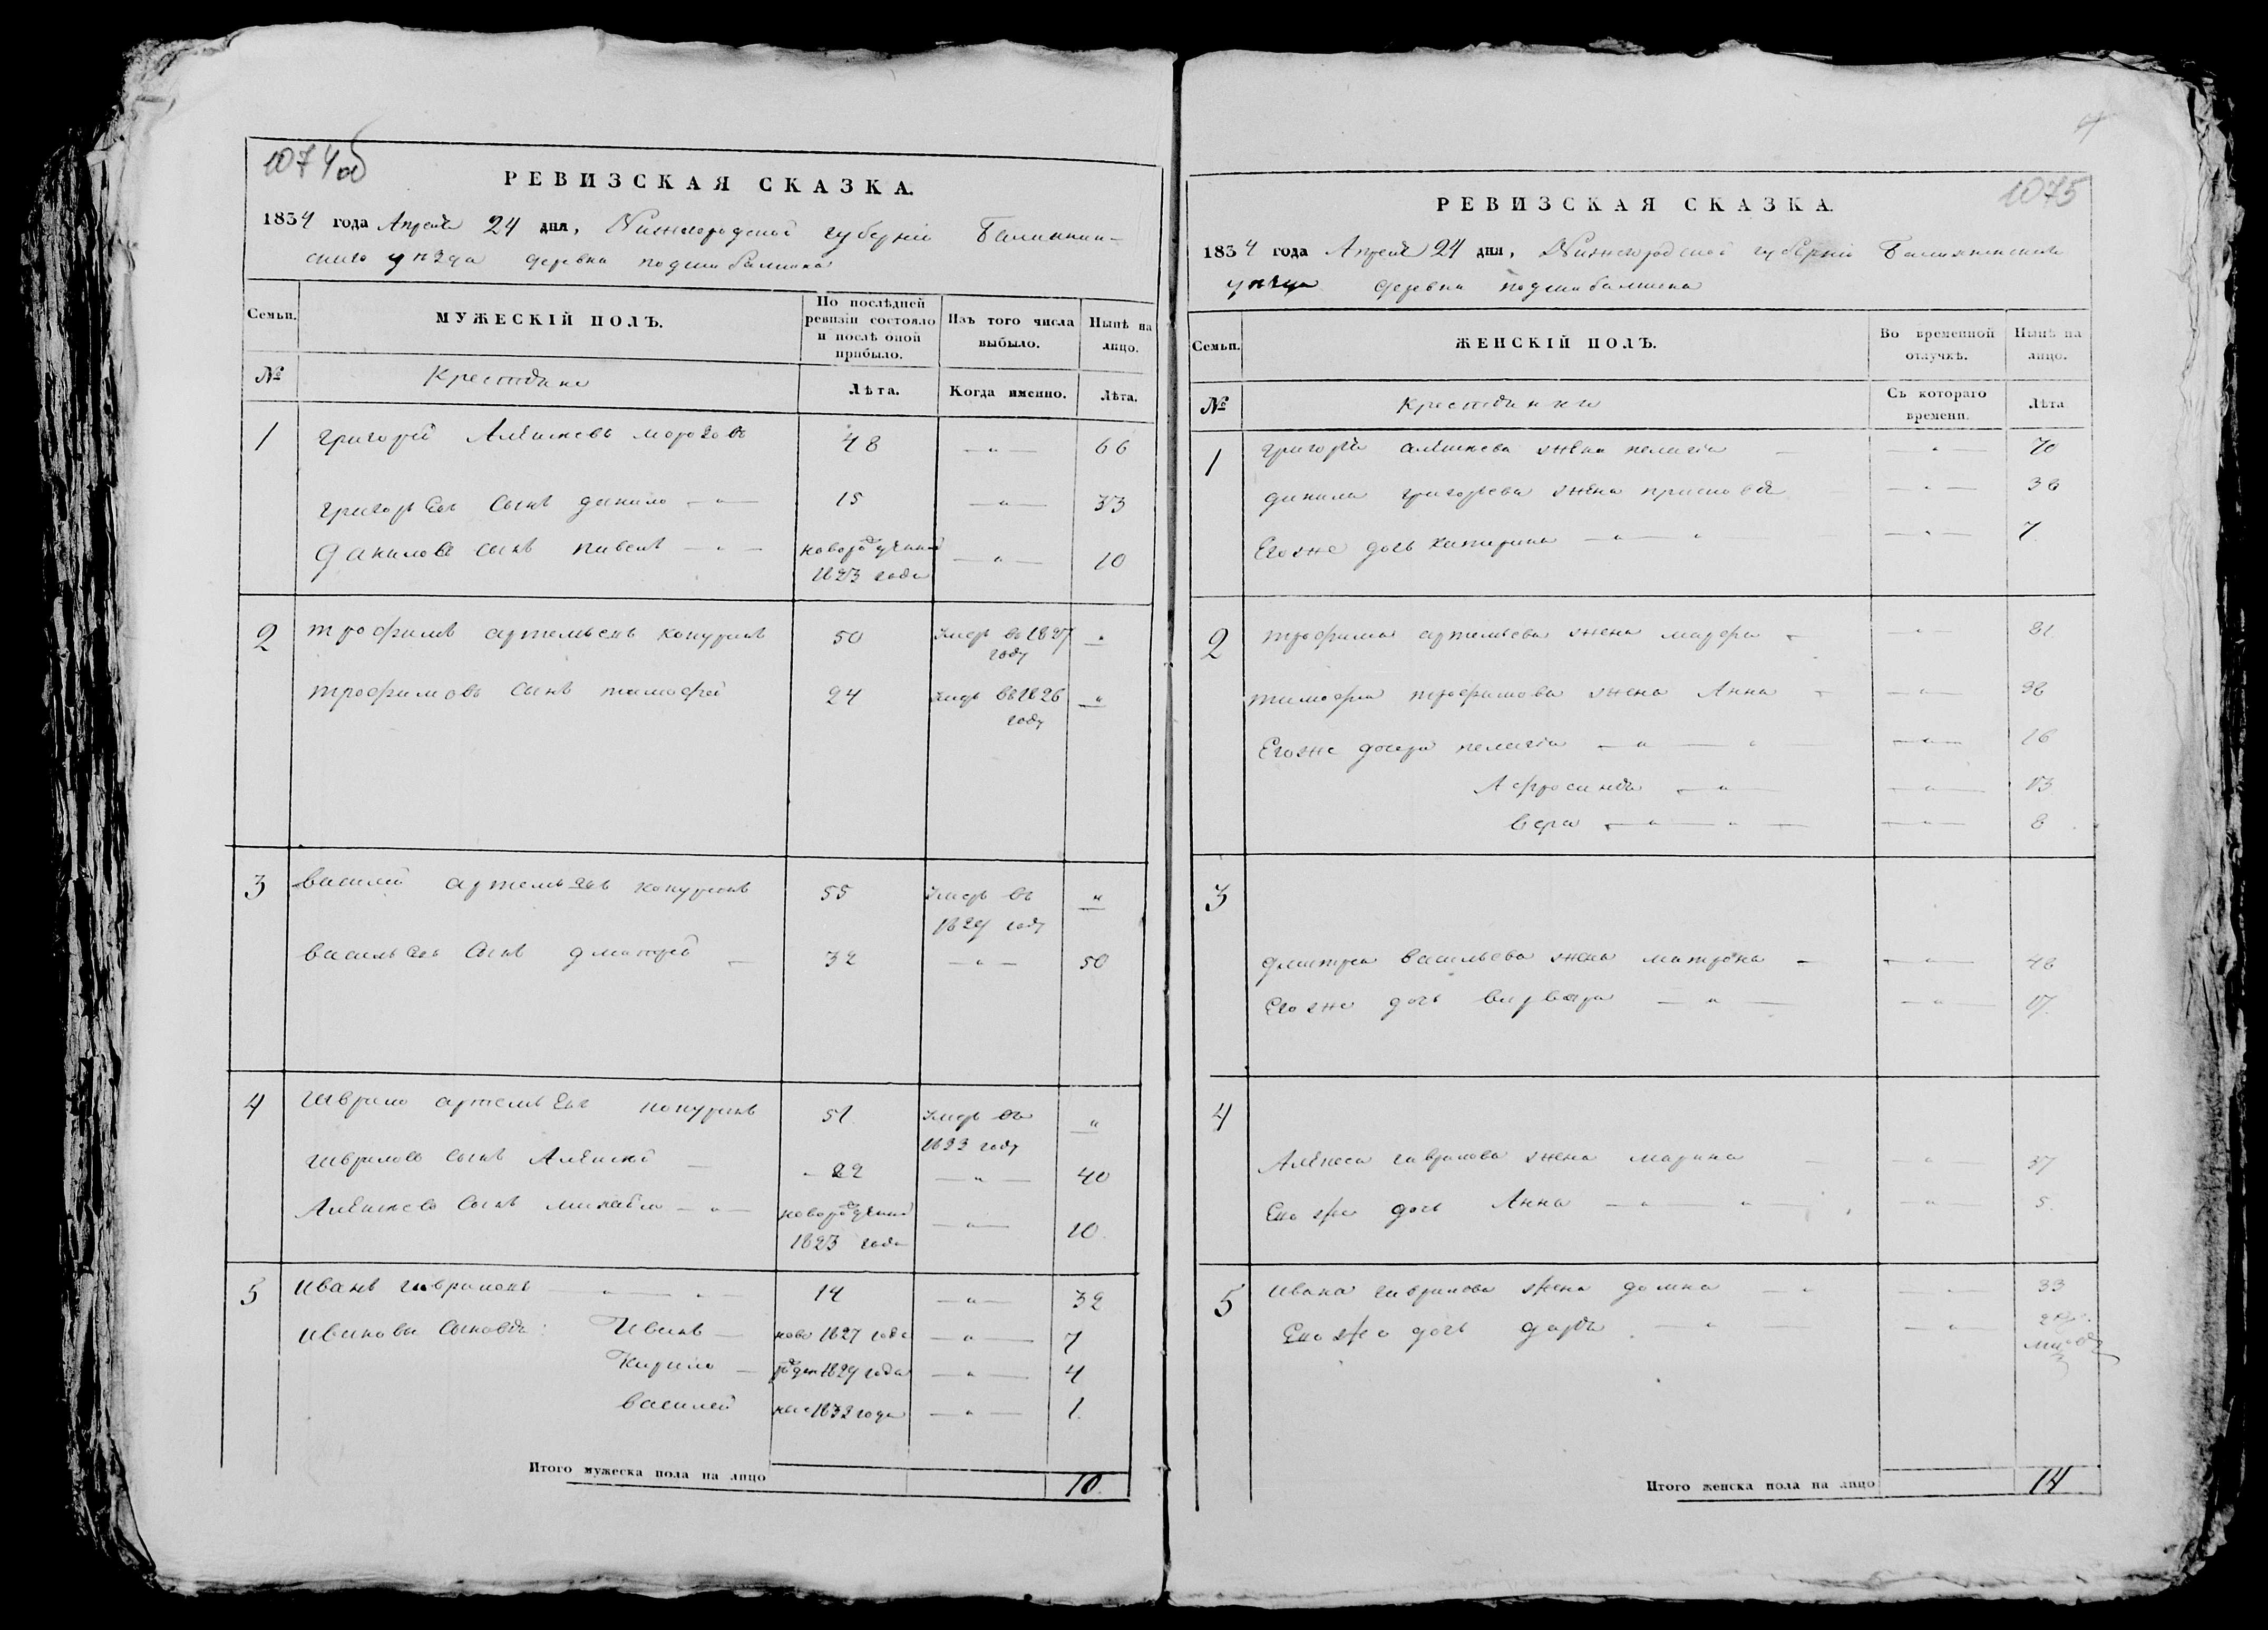 1074об
РЕВИЗСКАЯ СКАЗКА.
1834 года Апреля 24 дня, Нижегородской губерніи Балахнин-
скаго уезда деревни
Семьи. МУЖЕСКІЙ ПОЛЪ. По послѣдней ревизіи состояло и послѣ оной прибыло. Изъ того числа выбыло. Нынѣ на лицо.
№ Крестьяне Лѣта. Когда именно. Лѣта.
1 григорей Алексеевъ морозовъ 48 — „ — 66
григорьевъ сынъ данило — „ — 15 — „ — 33
даниловъ сынъ павелъ — „ — новорожденной 1823 года — „ — 10
2 трофимъ артемьевъ кокуринъ 50 умеръ въ 1827 году „
трофимовъ сынъ тимофей 24 умеръ въ 1826 году „
3 василей артемьевъ кокуринъ 55 умеръ въ 1829 году „
васильевъ сынъ дмитрей — 32 — „ — 50
4 гаврило артемьевъ кокуринъ 51 умеръ въ 1823 году „
гавриловъ сынъ Алексей — 22 — „ — 40
Алексеевъ сынъ михайло — „ — новорожденной 1823 года — „ — 10
5 иванъ гавриловъ — „ — „ — 14 — „ — 32
ивановы сыновья: Иванъ — ново 1827 года — „ — 7
Кирило — рожден 1829 года — „ — 4
василей ные 1832 года — „ — 1
Итого мужеска пола на лицо 10
1075
РЕВИЗСКАЯ СКАЗКА.
1834 года Апреля 24 дня, Нижегородской губерніи Балахнинскаго
уезда деревни
Семьи. ЖЕНСКІЙ ПОЛЪ. Во временной отлучкѣ. Нынѣ на лицо.
№ Крестьянки Съ котораго времени. Лѣта
1 григорья алексеева жена пелагія — — „ — 70
данила григорьева жена — „ — 38
Егоже дочь катерина — „ — „ — „ — 7
2 трофима артемьева жена марфа — — „ —
тимофея трофимова жена Анна — — „ — 38
Егоже дочери пелагія — „ — „ — „ — 16
Афросинья — „ — — „ — 13
вера — „ — „ — — „ — 8
3
дмитрея васильева жена матрена — — „ — 48
Егоже дочь варвара — „ — — „ — 17
4
Алексея гаврилова жена марина — — „ — 37
Егоже дочь Анна — „ — „ — — „ — 5
5 ивана гаврилова жена домна — „ — „ — 33
Егоже дочь дарья — „ — — „ —
Итого женска пола на лицо 14